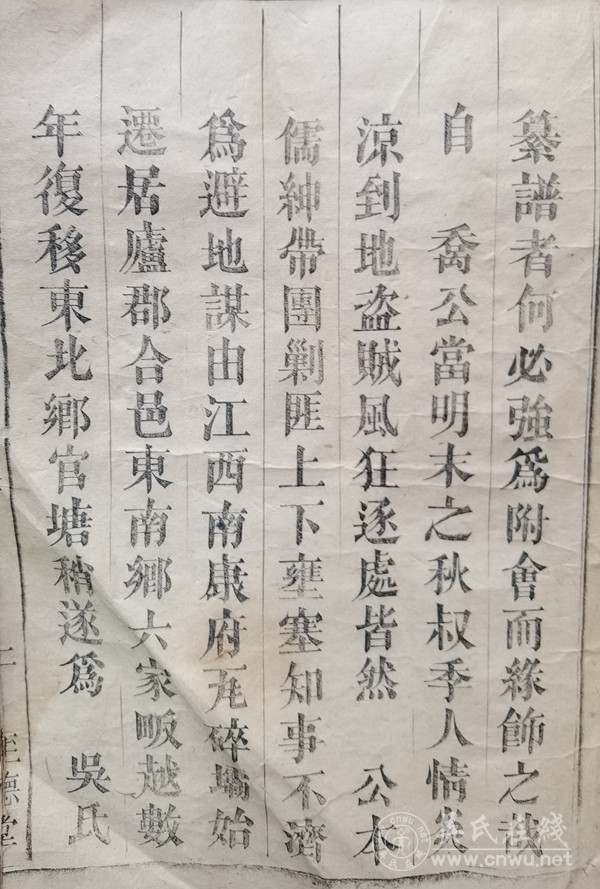 纂譜者何必強爲附會而緣飾之哉
自　喬公當明末之秋叔季人情炎
涼到地盜賊風狂逐處皆然　公本
儒紳帶團剿匪上下壅塞知事不濟
爲避地謀由江西南康府瓦碎壩始
遷居廬郡合邑東南鄉六家畈越數
年復移東北鄉官塘稍遂爲　吳氏
二　至德堂
吴氏在线
www.cnwu.net